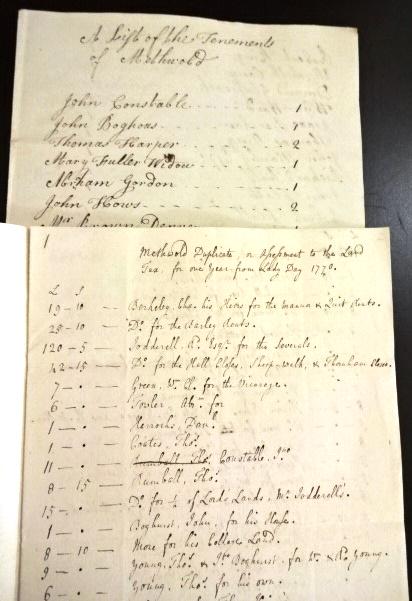 A List of the Tenements
of Methwold
John Constable - - - - 1
John Boghous - - - - 1
Thomas Harper - - - - 2
Mary Fuller Widow - - - - 1
Abriham Gordon - - - - 1
John Hows - - - - 2
Mr Brown Denne
1
Methwold Duplicate, or Assessment to the Land
Tax, for one Year from Lady Day 1770.
L S
19 - 10 — his Heirs for the mannor & Quit Rents.
25 - 10 — Do for the Barley Rents.
120 - 5 — Jodderell, Esqr. for the Severals.
42 - 15 — Do for the Hall Closes, Sheep-walk, &
7 - . — Green, Wm. Cl. for the Vicarage.
6 - . — Fowler, Abm. for
1 - . — Herrocks, Danl.
1 - . — Coates, Thos.
11 - . — Rumball, Thos. Constable, Jno.
8 - 15 — Rumball, Thos.
15 - . — Do for ½ of Lords Lands, Mr. Jodderell's.
1 - . — Boghurst, John, for his House.
8 - 10 — More for his Land.
9 - . — Young, Thos. & Jn. Boghurst, for Young.
6 - . — Young, Thos. for his own.